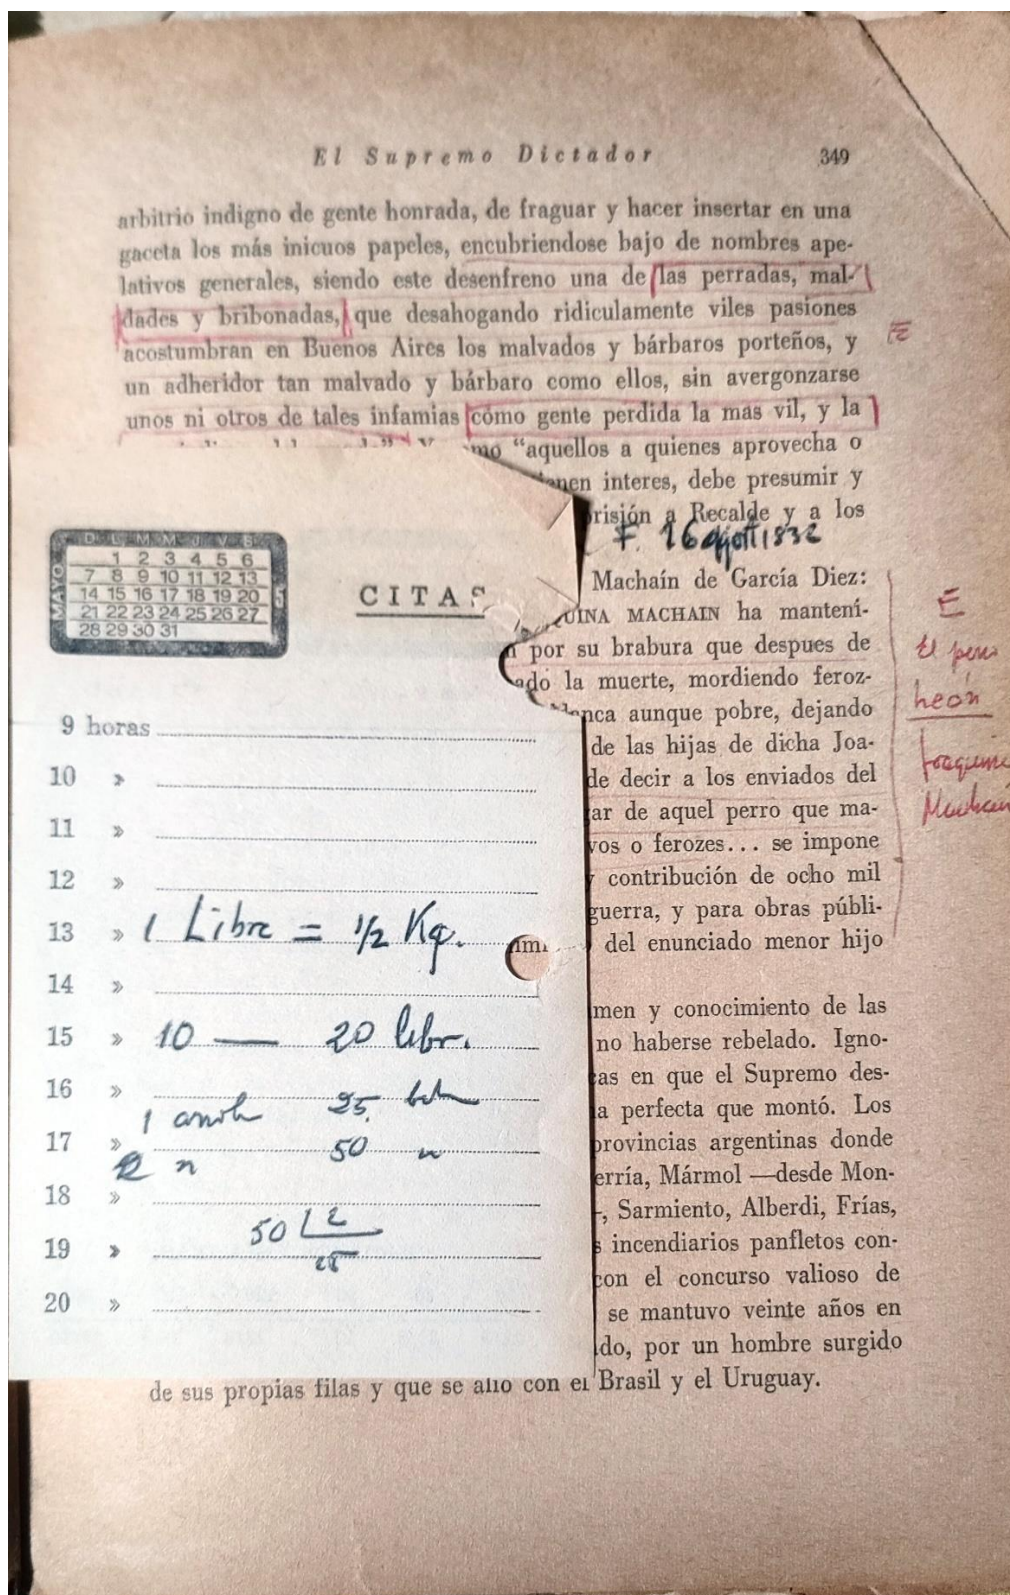 El Supremo Dictador 349
arbitrio indigno de gente honrada, de fraguar y hacer insertar en una
gaceta los más inicuos papeles, encubriendose bajo de nombres ape-
lativos generales, siendo este desenfreno una de las perradas, mal-
dades y bribonadas, que desahogando ridiculamente viles pasiones
acostumbran en Buenos Aires los malvados y bárbaros porteños, y
E
un adheridor tan malvado y bárbaro como ellos, sin avergonzarse
unos ni otros de tales infamias como gente perdida la mas vil, y la
mo “aquellos a quienes aprovecha o
nen interes, debe presumir y
risión a Recalde y a los
F. 16 agott 1832
Machaín de García Diez:
UINA MACHAIN ha mantení-
por su brabura que despues de
ado la muerte, mordiendo feroz-
nca aunque pobre, dejando
de las hijas de dicha Joa-
de decir a los enviados del
ar de aquel perro que ma-
vos o ferozes... se impone
contribución de ocho mil
guerra, y para obras públi-
del enunciado menor hijo
men y conocimiento de las
no haberse rebelado. Igno-
as en que el Supremo des-
a perfecta que montó. Los
provincias argentinas donde
erría, Mármol —desde Mon-
, Sarmiento, Alberdi, Frías,
s incendiarios panfletos con-
con el concurso valioso de
se mantuvo veinte años en
do, por un hombre surgido
de sus propias filas y que se alió con el Brasil y el Uruguay.
E
El perro
heón
Joaquina
Machain
MAYO 5
D L M M J V S
1 2 3 4 5 6
7 8 9 10 11 12 13
14 15 16 17 18 19 20
21 22 23 24 25 26 27
28 29 30 31
CITAS
9 horas
10 »
11 »
12 »
13 » 1 Libre = 1/2 Kg.
14 »
15 » 10 — 20 libr.
16 »
1 25
17 » 50
2 n
18 »
50 2
19 » 25
20 »